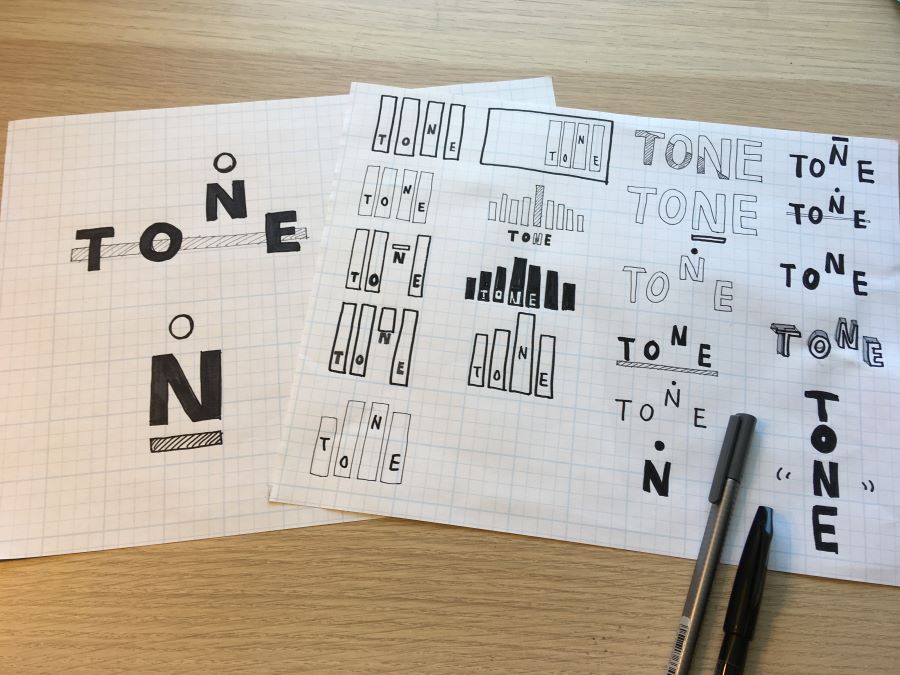 TONE
N
TONE
TONE
TONE
TONE
TONE
TONE
TONE
TONE
TONE
TONE
TONE
TONE
TONE
TONE
N
TONE
TONE
TONE
TONE
TONE